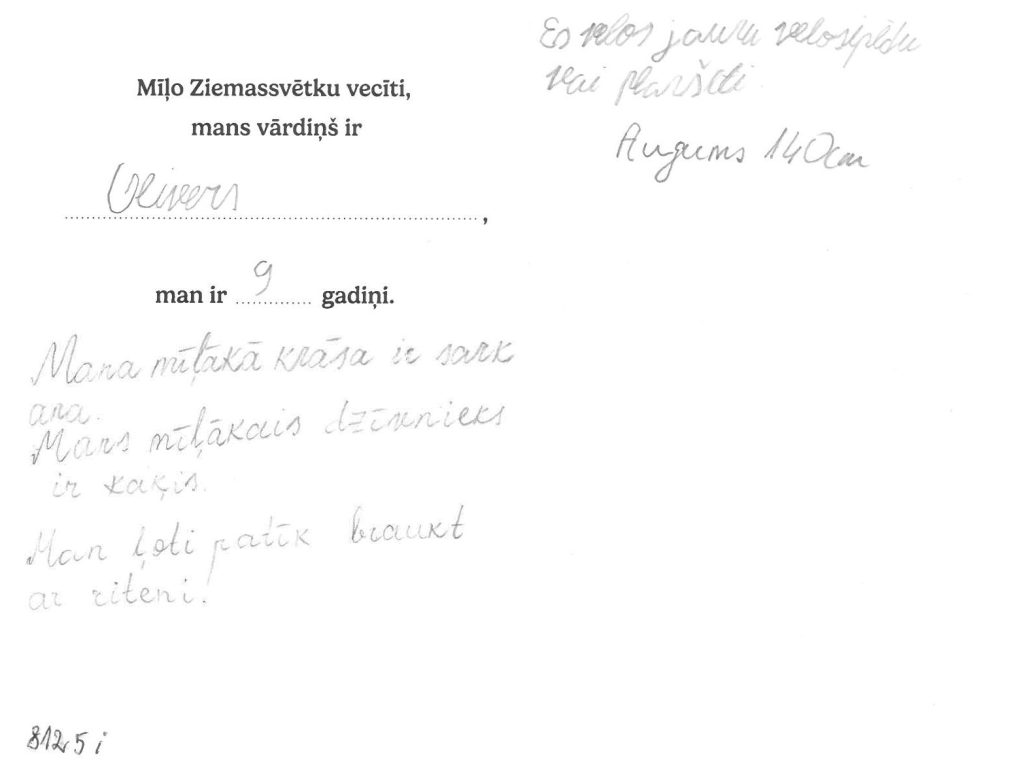 Mīļo Ziemassvētku vecīti,
mans vārdiņš ir
Olivers,
man ir 9 gadiņi.
Mana mīļākā krāsa ir sark
ana.
Mans mīļākais dzīvnieks
ir kaķis.
Man ļoti patīk braukt
ar riteni!
8125 i
Es vēlos jaunu velosipēdu
vai planšeti.
Augums 140cm